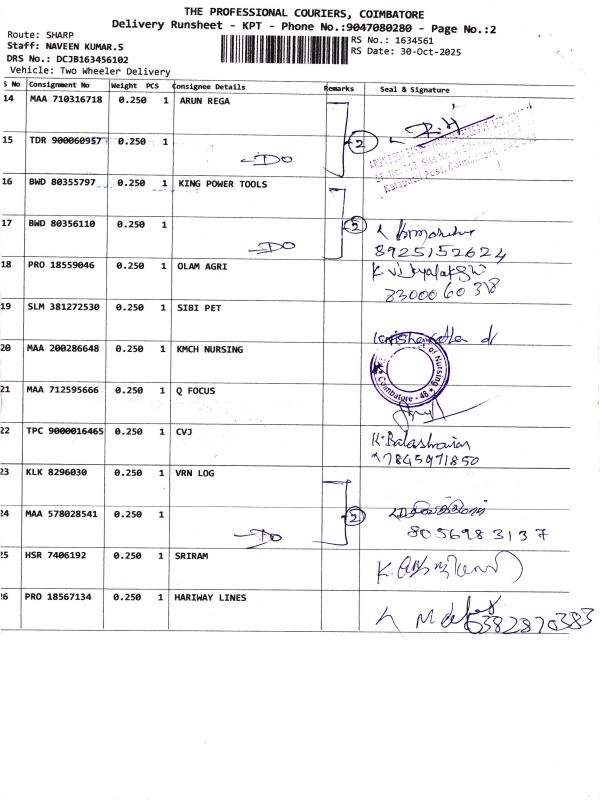 THE PROFESSIONAL COURIERS, COIMBATORE
Delivery Runsheet - KPT - Phone No.:9047080280 - Page No.:2
Route: SHARP
RS No.: 1634561
Staff: NAVEEN KUMAR.S
RS Date: 30-Oct-2025
DRS No.: DCJB163456102
Vehicle: Two Wheeler Delivery
S No Consignment No Weight PCS Consignee Details Remarks Seal & Signature
14 MAA 710316718 0.250 1 ARUN REGA
15 TDR 900060957 0.250 1
-DO 2
16 BWD 80355797 0.250 1 KING POWER TOOLS
17 BWD 80356110 0.250 1 2
-DO 8925152624
18 PRO 18559046 0.250 1 OLAM AGRI K. Vijayalakshmi
19 SLM 381272530 0.250 1 SIBI PET
20 MAA 200286648 0.250 1 KMCH NURSING
of Nursing
Coimbatore - 48
21 MAA 712595666 0.250 1 Q FOCUS
22 TPC 9000016465 0.250 1 CVJ
7845971850
23 KLK 8296030 0.250 1 VRN LOG
24 MAA 578028541 0.250 1 2
-DO 8056983137
25 HSR 7406192 0.250 1 SRIRAM
26 PRO 18567134 0.250 1 HARIWAY LINES
6382870383